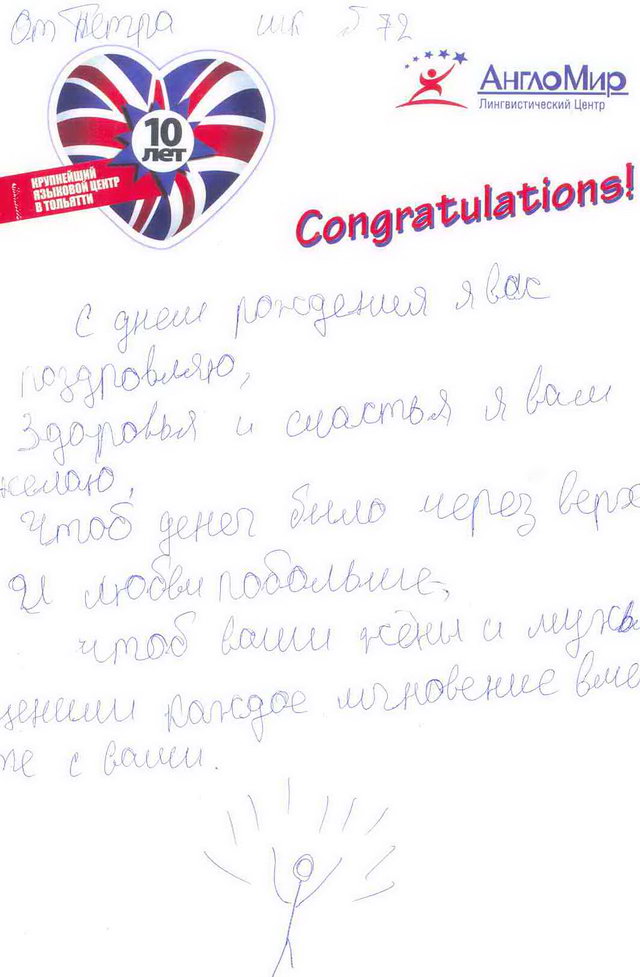 От Петра шк № 72
АнглоМир
Лингвистический Центр
10
лет
КРУПНЕЙШИЙ
ЯЗЫКОВОЙ ЦЕНТР
В ТОЛЬЯТТИ
Congratulations!
С днем рождения я вас
поздровляю,
Здоровья и счастья я вам
желаю,
Чтоб денег было через верх
И любви побольше,
чтоб ваши жёны и мужья
ценили каждое мгновение вме
те с вами.